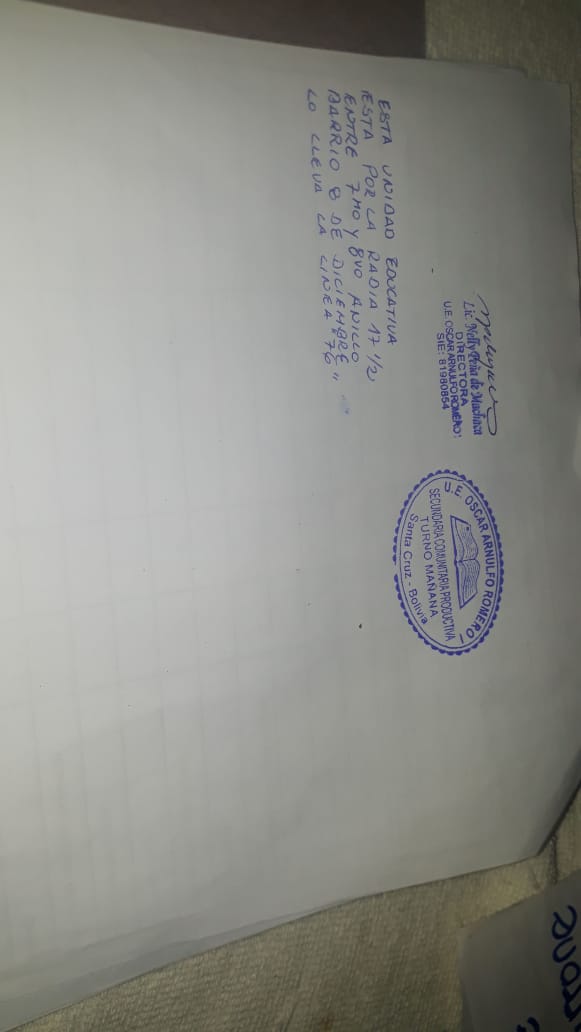 Lic. Nelly Peña de Machaca
DIRECTORA
U.E. OSCAR ARNULFO ROMERO I
SIE: 81980854
U.E. OSCAR ARNULFO ROMERO I
SECUNDARIA COMUNITARIA PRODUCTIVA
TURNO MAÑANA
Santa Cruz - Bolivia
ESTA UNIDAD EDUCATIVA
ESTA POR LA RADIA 17 1/2
ENTRE 7MO Y 8VO ANILLO
BARRIO 8 DE DICIEMBRE
LO LLEVA LA LINEA "76"